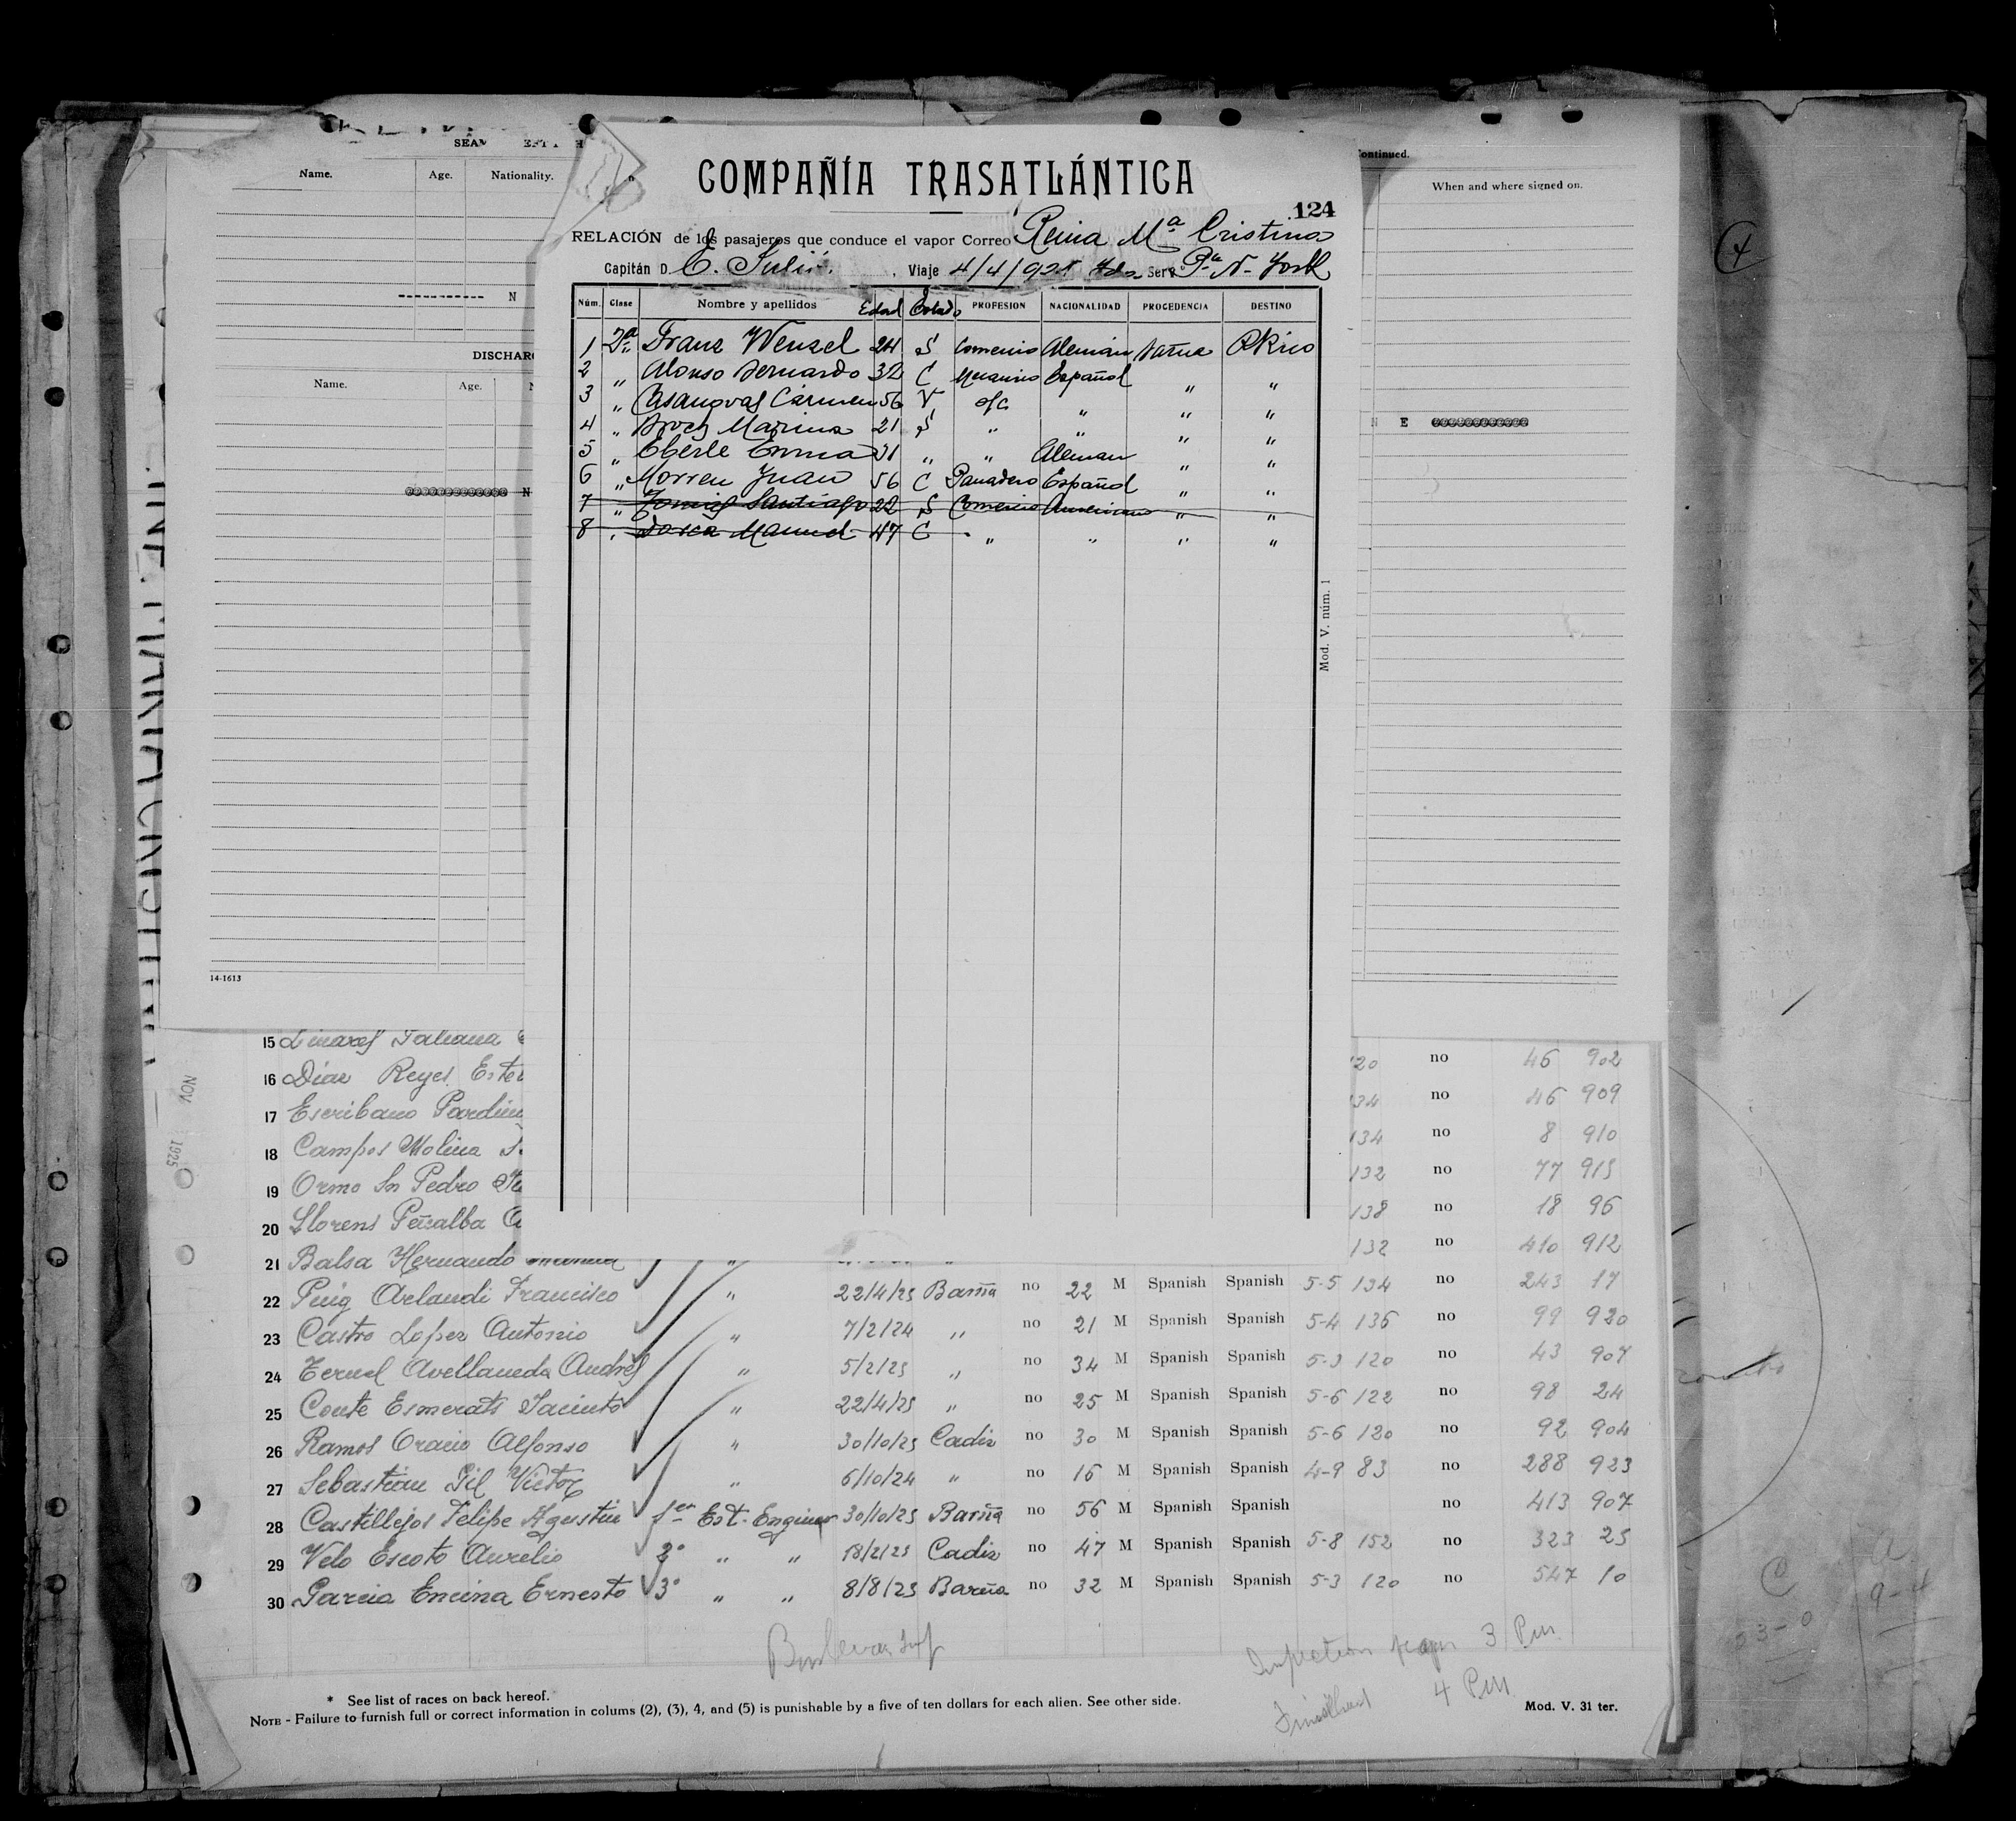 SEAM
Name. Age. Nationality.
N
DISCHAR
Name. Age. N
N
14-1613
ontinued.
When and where signed on.
N E
COMPAÑÍA TRASATLÁNTICA
124
RELACIÓN de los pasajeros que conduce el vapor Correo Reina Mª Cristina
Capitán D. E. Juliá. , Viaje 4/4/925 Serv.º N-York
Núm. Clase Nombre y apellidos Edad Estado PROFESION NACIONALIDAD PROCEDENCIA DESTINO
1 2ª Franz Wenzel 24 S Comercio Alemán Barña P Rico
2 " Alonso Bernardo 32 C Mecanico Español " "
3 " Casanovas Carmen 56 V s/c " " "
4 " Marina 21 S " " " "
5 " Eberle Emma 31 " " Aleman " "
6 " Morren Juan 56 C Panadero Español " "
7 " Santiago 22 S Comercio Americano " "
8 " Manuel 47 C " " " "
Mod. V. núm. 1
4
NOV 1925
15 Linares Taliana
16 Diaz Reyes Este 120 no 46 902
17 Escribano Pardin 134 no 46 909
18 Campos Molina 134 no 8 910
19 Ormo Sn Pedro 132 no 77 915
20 Llorens Peñalba 138 no 18 96
21 Balsa Hernando " 132 no 410 912
22 Puig Arlandi Francisco " 22/4/25 Barña no 22 M Spanish Spanish 5-5 134 no 243 17
23 Castro Lopez Antonio " 7/2/24 " no 21 M Spanish Spanish 5-4 136 no 99 920
24 Teruel Avellaneda Andrés " 5/2/25 " no 34 M Spanish Spanish 5-3 120 no 43 907
25 Conte Esmerats Jacinto " 22/4/25 " no 25 M Spanish Spanish 5-6 122 no 98 24
26 Ramos Oracio Alfonso " 30/10/25 Cadiz no 30 M Spanish Spanish 5-6 120 no 92 904
27 Sebastian Gil Victor " 6/10/24 " no 16 M Spanish Spanish 4-9 83 no 288 923
28 Castillejos Felipe Agustin 1er Est. Engineer 30/10/25 Barña no 56 M Spanish Spanish no 413 907
29 Velo Escoto Aurelio 2º " " 18/2/25 Cadiz no 47 M Spanish Spanish 5-8 152 no 323 25
30 Garcia Encina Ernesto 3º " " 8/8/25 Barña no 32 M Spanish Spanish 5-3 120 no 547 10
Inspection began 3 Pm
Finished 4 Pm
* See list of races on back hereof.
NOTE - Failure to furnish full or correct information in colums (2), (3), 4, and (5) is punishable by a five of ten dollars for each alien. See other side.
Mod. V. 31 ter.